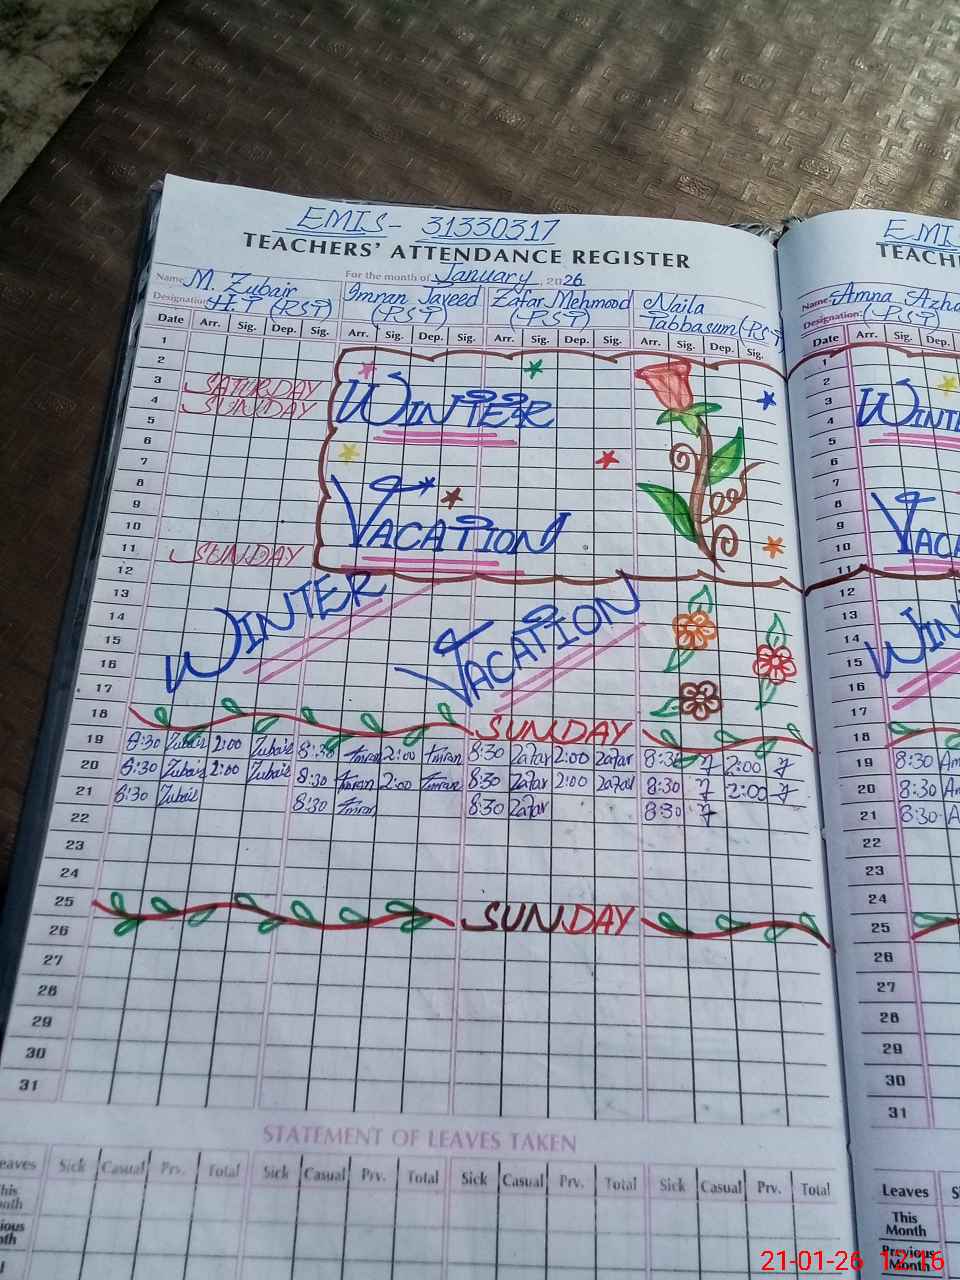 EMIS- 31330317
TEACHERS' ATTENDANCE REGISTER
For the month of January, 2026
Name M. Zubair Imran Javeed Zafar Mehmood Naila
Designation H.T (PST) (PST) (PST) Tabbasum (PST)
Date Arr. Sig. Dep. Sig. Arr. Sig. Dep. Sig. Arr. Sig. Dep. Sig. Arr. Sig. Dep. Sig.
1
2
3 SATURDAY
4 SUNDAY
WINTER
5
6
7
8
9
10
VACATION
11 SUNDAY
12
13
14
15
16
WINTER VACATION
17
18 SUNDAY
19 8:30 Zubair 2:00 Zubair 8:30 Imran 2:00 Imran 8:30 Zafar 2:00 Zafar 8:30 2:00
20 8:30 Zubair 2:00 Zubair 8:30 Imran 2:00 Imran 8:30 Zafar 2:00 Zafar 8:30 2:00
21 8:30 Zubair 8:30 Imran 8:30 Zafar 8:30
22
23
24
25 SUNDAY
26
27
28
29
30
31
STATEMENT OF LEAVES TAKEN
eaves Sick Casual Prv. Total Sick Casual Prv. Total Sick Casual Prv. Total Sick Casual Prv. Total
his
onth
ious
nth
EMIS
TEACH
Name: Amna Azha
Designation: (PST)
Date Arr. Sig. Dep
1
2
3
4
WINT
5
6
7
8
9
10
VACA
11
12
13
14
15
WIN
16
17
18
19 8:30 Am
20 8:30 Am
21 8:30 A
22
23
24
25
26
27
28
29
30
31
Leaves S
This
Month
Previous
Month
21-01-26 12:16